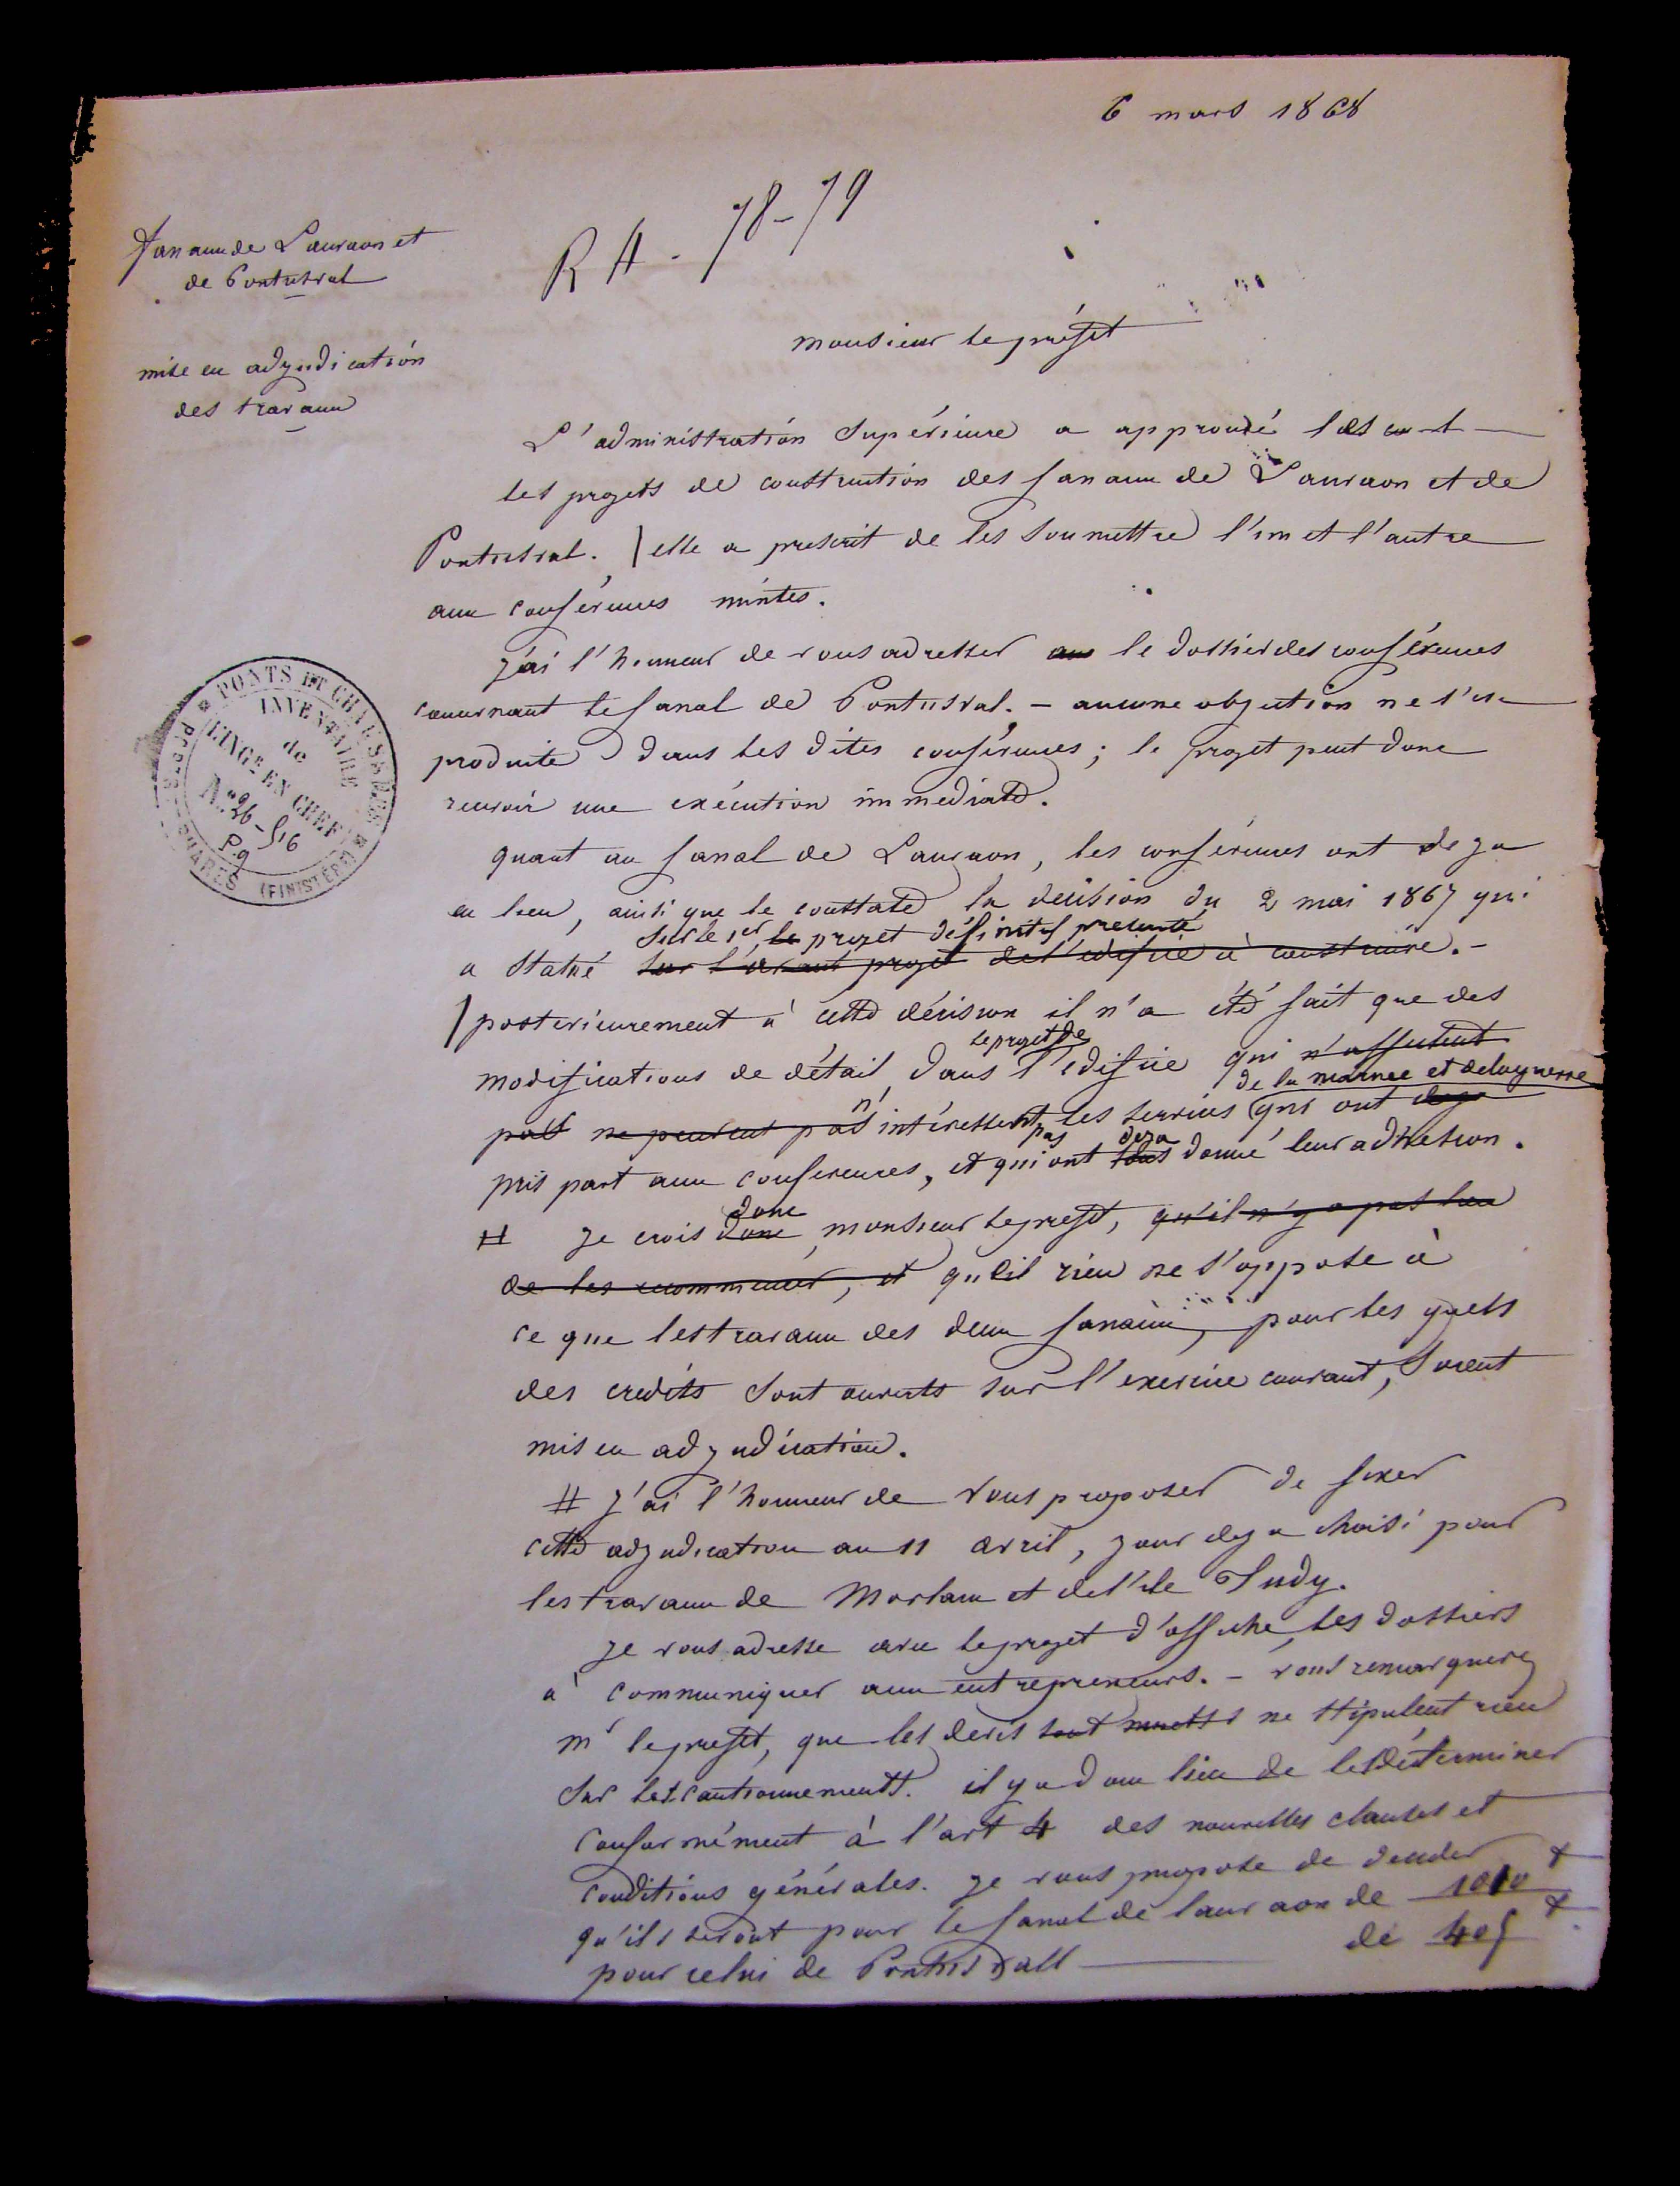 6 mars 1868
R H - 78-79
fanaux de Lauvaon et
de Pontusval
mise en adjudication
des travaux
monsieur le préfet
L'administration Supérieure a approuvé les
les projets de construction des fanaux de Lauvaon et de
Pontusval. elle a prescrit de les soumettre l'un et l'autre
aux conférences mixtes.
J'ai l'honneur de vous adresser le dossier des conférences
concernant le fanal de Pontusval. - aucune objection ne s'est
produite dans les dites conférences; le projet peut donc
recevoir une exécution immédiate.
PONTS ET CHAUSSÉES
INVENTAIRE
de
L'INGR EN CHEF
N° 26-516
P.9
PHARES (FINISTÈRE)
quant au fanal de Lauvaon, les conférences ont deja
eu lieu, ainsi que le constate la décision du 2 mai 1867 qui
sur le 1er le projet définitif présenté
a statué sur l'avant projet de l'édifice à construire. -
posterieurement à cette décision il n'a été fait que des
le projet de
modifications de détail, dans l'édifice qui n'affectent
de la marine et de la guerre
pas ne peuvent pas n'intéressent les services qui ont deja
pas deja
pris part aux conferences, et qui ont tous donné leur adhésion.
donc
Je crois donc, monsieur le prefet, qu'il n'y a pas lieu
de les recommencer, et qu'il rien ne s'oppose à
ce que les travaux des deux fanaux, pour les quels
des credits sont ouverts sur l'exercice courant, soient
mis en adjudication.
J'ai l'honneur de vous proposer de fixer
cette adjudication au 11 avril, jour deja choisi pour
les travaux de Morlaix et de l'ile Tudy.
Je vous adresse avec le projet d'affiche, les dossiers
à communiquer aux entrepreneurs. - vous remarquerez
mr le prefet, que les devis sont muets ne stipulent rien
sur les cautionnements. il y a donc lieu de les déterminer
conformément à l'art 4 des nouvelles clauses et
conditions générales. Je vous propose de decider
qu'ils seront pour le fanal de lauvaon de 1010 f
pour celui de Pontusvall de 405 f